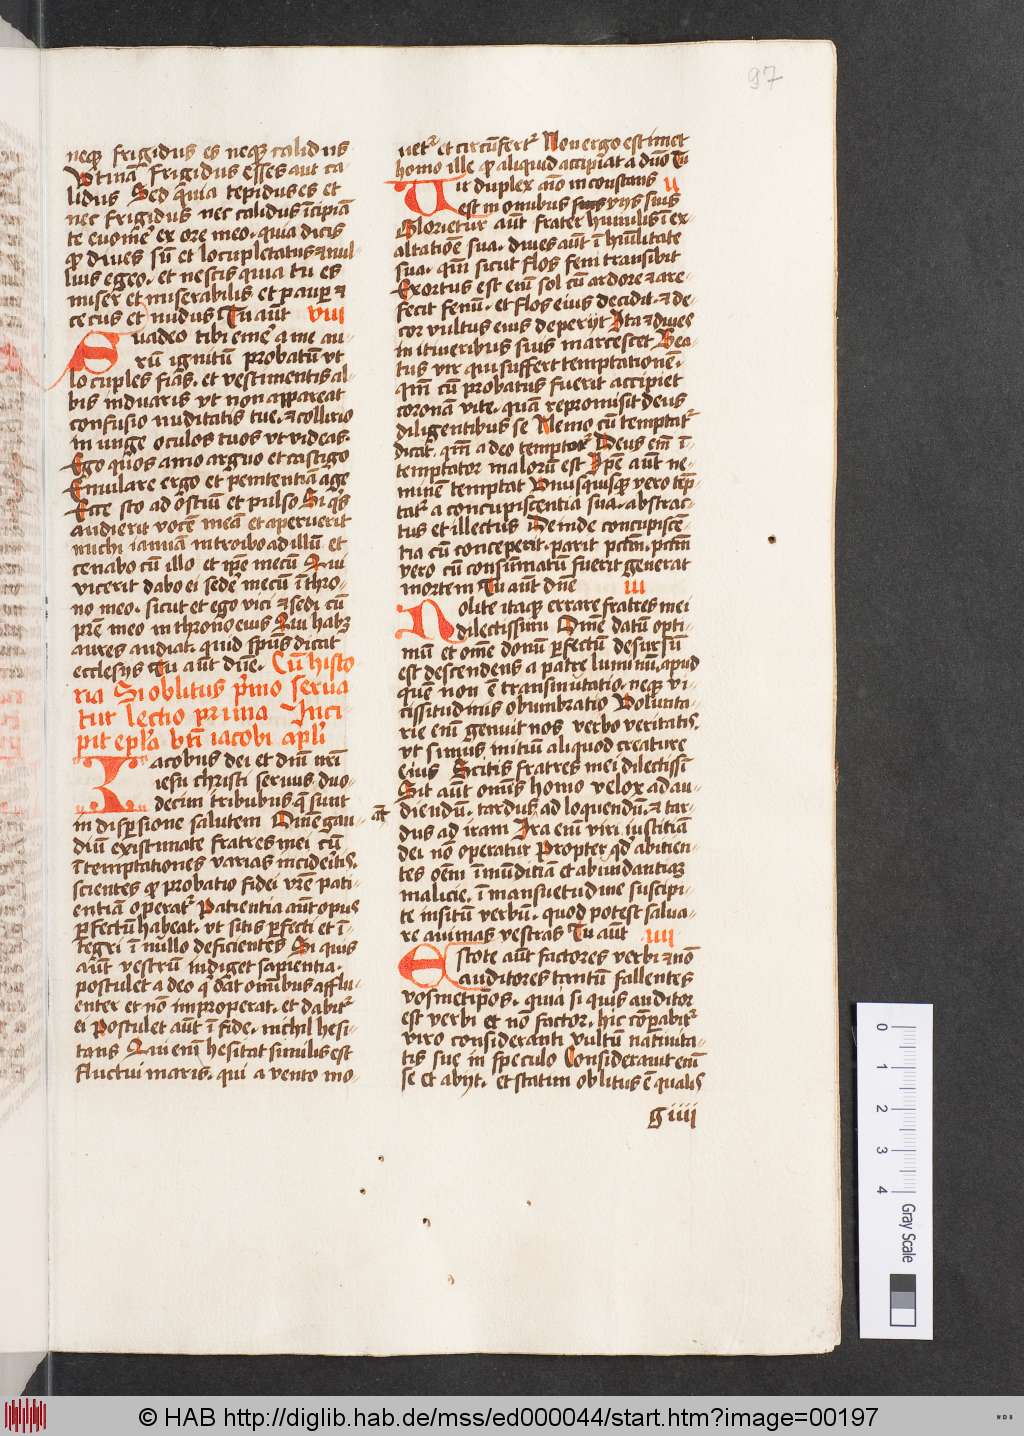 97
neq; frigidus es neq; calidus
Vtinā frigidus esses aut ca-
lidus Sed quia tepidus es et
nec frigidus nec calidus īcipiā
te euomē ex ore meo. quia dicis
qp diues sū et locupletatus & nul-
lius egeo. et nescis quia tu es
miser et miserabilis et paup &
cecus et nudus Tu aūt viii
Suadeo tibi emē a me au-
rū ignitū probatū vt
locuples fias. et vestimentis al-
bis induaris vt non appareat
confusio nuditatis tue. & collirio
in unge oculos tuos vt videas.
Ego quos amo arguo et castigo
Emulare ergo et penitentiā age
Ecce sto ad ostiū et pulso Si qs
audierit vocē meā et aperuerit
michi ianuā introibo ad illū et
cenabo cū illo et ipe mecū Qui
vicerit dabo ei sede mecū ī thro-
no meo. sicut et ego vici & sedi cū
prē meo in throno eius Qui habz
aures audiat. quid spūs dicat
ecclesijs Tu aūt dne. Cū histo
ria Si oblitus pmo serua
tur lectio prima Inci
pit epla bti iacobi apli
Iacobus dei et dni nri
iesu christi seruus duo-
decim tribubus q sunt
in dispersione salutem Omē gau-
diū existimate fratres mei cū
ī temptationes varias incideitis.
scientes qp probatio fidei vrē pati-
entiā operat Patientia aūt opus
perfectū habeat. vt sitis perfecti et ī-
tegri ī nullo deficientes Si quis
aūt vestrū indiget sapientia.
postulet a deo q dat omībus afflu-
enter et nō improperat. et dabit
ei Postulet aūt ī fide. nichil hesi-
tans Qui enī hesitat similis est
fluctui maris. qui a vento mo-
uet et circūfert Non ergo estimet
homo ille qp aliquid accipiat a dno Tu
Vir duplex aīo inconstans ii
est in omībus vijs suis
Glorietur aūt frater humilis ī ex-
altatiōe sua. diues aūt ī hūilitate
sua. qm sicut flos feni transibit
Exortus est enī sol cū ardore & are-
fecit fenū. et flos eius decidit. & de-
cor vultus eius deperijt Ita & diues
in itineribus suis marcescet Bea-
tus vir qui suffert temptationē.
qm cū probatus fuerit accipiet
coronā vite. quā repromisit deus
diligentibus se Nemo cū temptat
dicat. qm a deo temptor Deus enī ī-
temptator malorū est Ipe aūt ne-
minē temptat Vnusquisq; vero tēp-
tat a concupiscentia sua. abstrac-
tus et illectus Deinde concupiscē-
tia cū conceperit. parit pctm. pctm
vero cū consūmatū fuerit generat
mortem Tu aūt dne iii
Nolite itaq; errare fratres mei
dilectissimi Omē datū opti-
mū et omē donū perfectū desursū
est descendens a patre luminū. apud
quē non ē transmutatio. neq; vi-
cissitudinis obumbratio Volunta-
rie enī genuit nos verbo veritatis.
vt simus initiū aliquod creature
eius Scitis fratres mei dilectissī
Sit aūt omīs homo velox ad au-
diendū. tardus ad loquendū. & tar-
dus ad iram Ira enī viri iustitiā
dei nō operatur Propter qd abitien-
tes oēm ī mūditiā et abundantiaz
malicie. ī mansuetudine suscipi-
te insitū verbū. quod potest salua-
re animas vestras Tu aūt iiii
Estote aūt factores verbi & nō
auditores tantū fallentes
vosmetipos. quia si quis auditor
est verbi et nō factor. hic cōpabit
viro consideranti vultū natiuita-
tis sue in speculo Considerauit enī
se et abijt. et statim oblitus ē qualis
g iiii
0
1
2
3
4
Gray Scale
© HAB http://diglib.hab.de/mss/ed000044/start.htm?image=00197